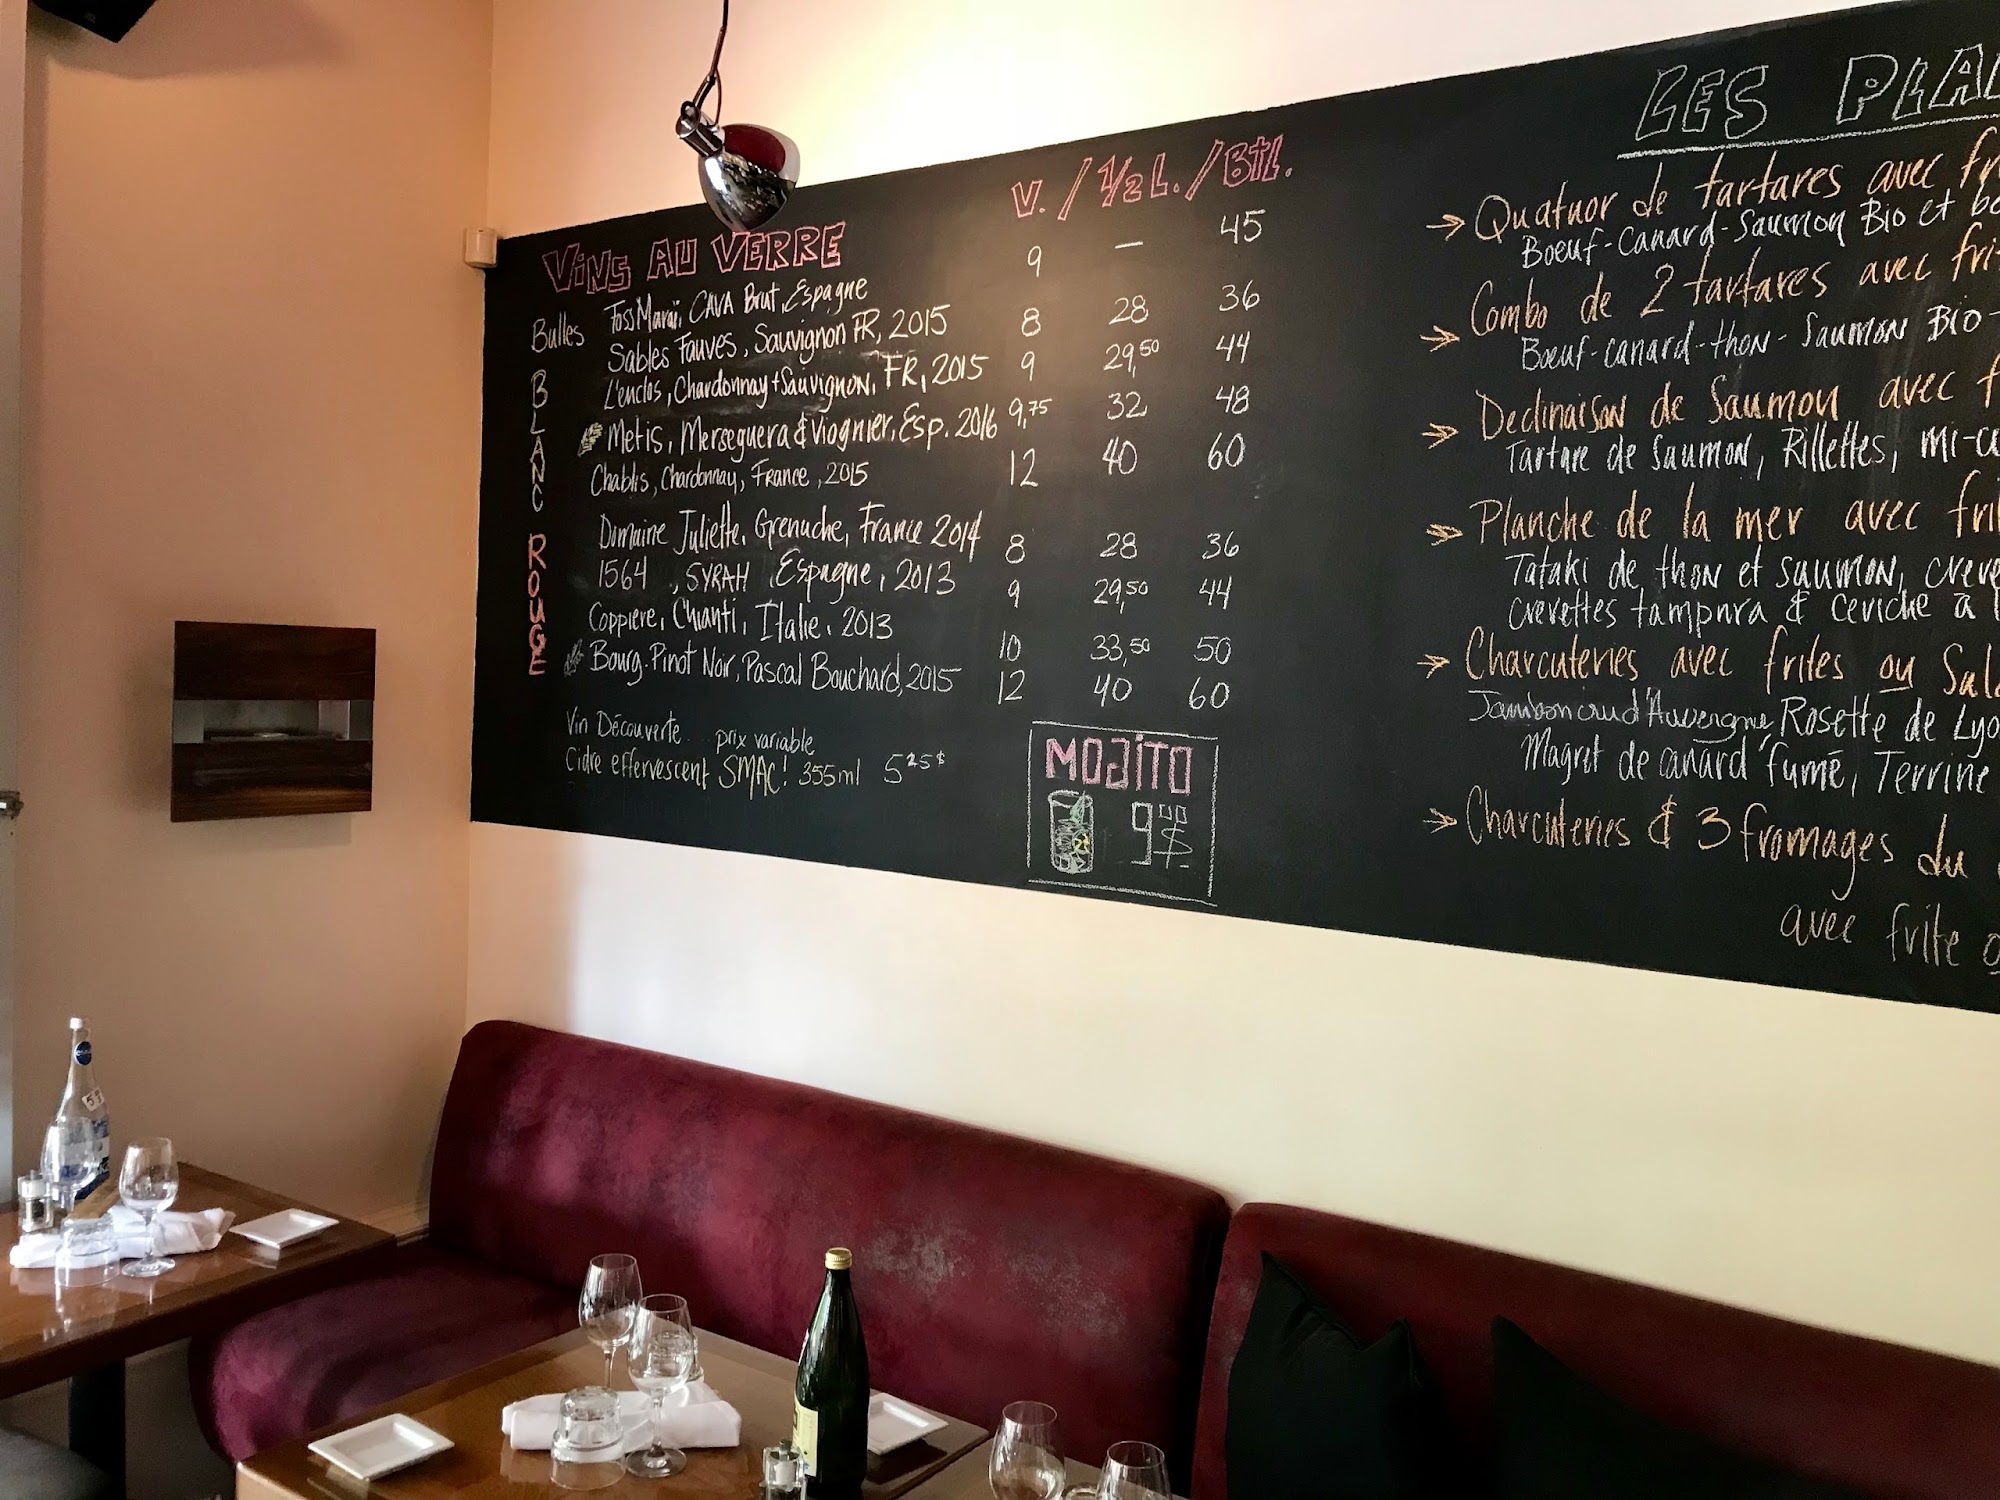 VINS AU VERRE V. / 1/2 L. / Btl.
Bulles Foss Marai, CAVA Brut, Espagne 9 — 45
BLANC
Sables Fauves, Sauvignon FR, 2015 8 28 36
L'enclos, Chardonnay + Sauvignon, FR, 2015 9 29,50 44
Metis, Merseguera & Viognier, Esp. 2016 9,75 32 48
Chablis, Chardonnay, France, 2015 12 40 60
ROUGE
Domaine Juliette, Grenache, France 2014 8 28 36
1564, SYRAH, Espagne, 2013 9 29,50 44
Coppiere, Chianti, Italie, 2013 10 33,50 50
Bourg. Pinot Noir, Pascal Bouchard, 2015 12 40 60
Vin Découverte... prix variable
Cidre effervescent SMAC! 355ml 5 25 $
MOJITO
9 00 $
LES PLA
→ Quatuor de tartares avec fr
Boeuf-Canard-Saumon Bio et
→ Combo de 2 tartares avec fri
Boeuf-canard-thon-Saumon Bio-
→ Declinaison de Saumon avec f
Tartare de Saumon, Rillettes, mi-cu
→ Planche de la mer avec frit
Tataki de thon et saumon, creve
crevettes tampura & ceviche à l
→ Charcuteries avec frites ou Sala
Jambon crud'Auvergne, Rosette de Lyo
Magret de canard fumé, Terrine
→ Charcuteries & 3 fromages du
avec frite o